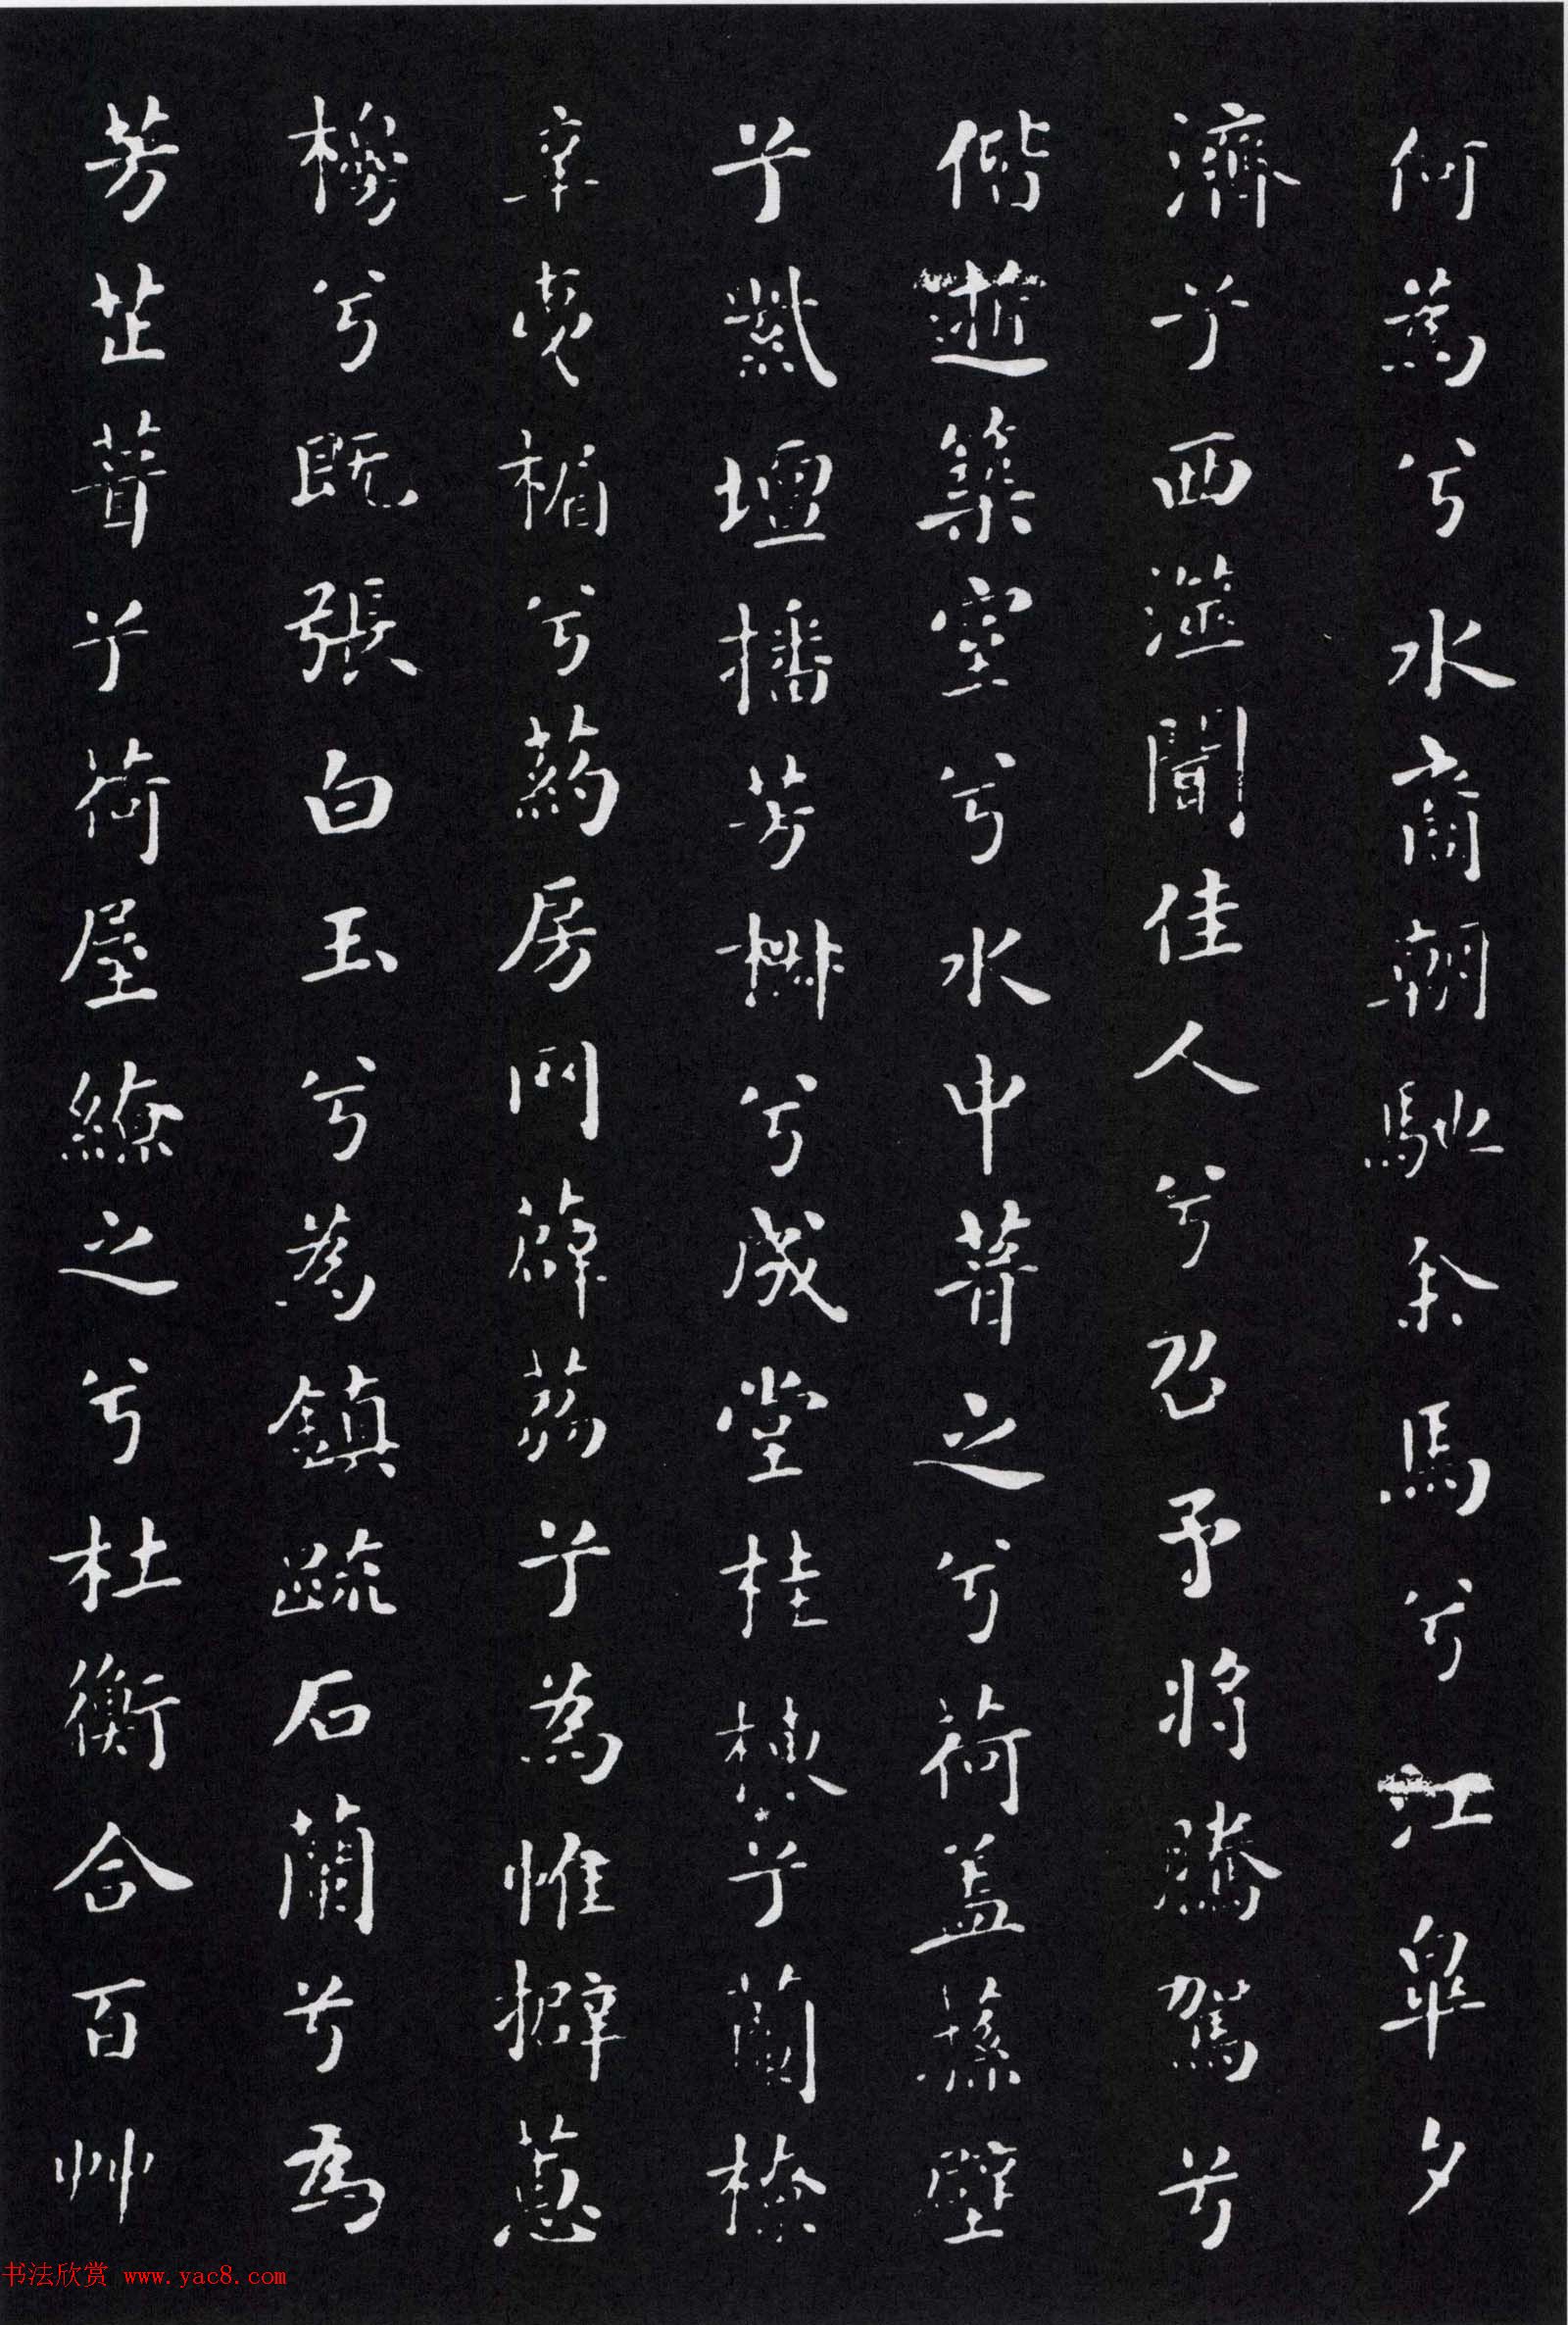 何為兮水裔朝馳余馬兮江皐夕
濟兮西澨聞佳人兮召予將騰駕兮
偕逝築室兮水中葺之兮荷蓋蓀壁
兮紫壇播芳椒兮成堂桂棟兮蘭橑
辛夷楣兮葯房网薜荔兮為帷擗蕙
櫋兮既張白玉兮為鎮疏石蘭兮為
芳芷葺兮荷屋繚之兮杜衡合百艸
书法欣赏 www.yac8.com